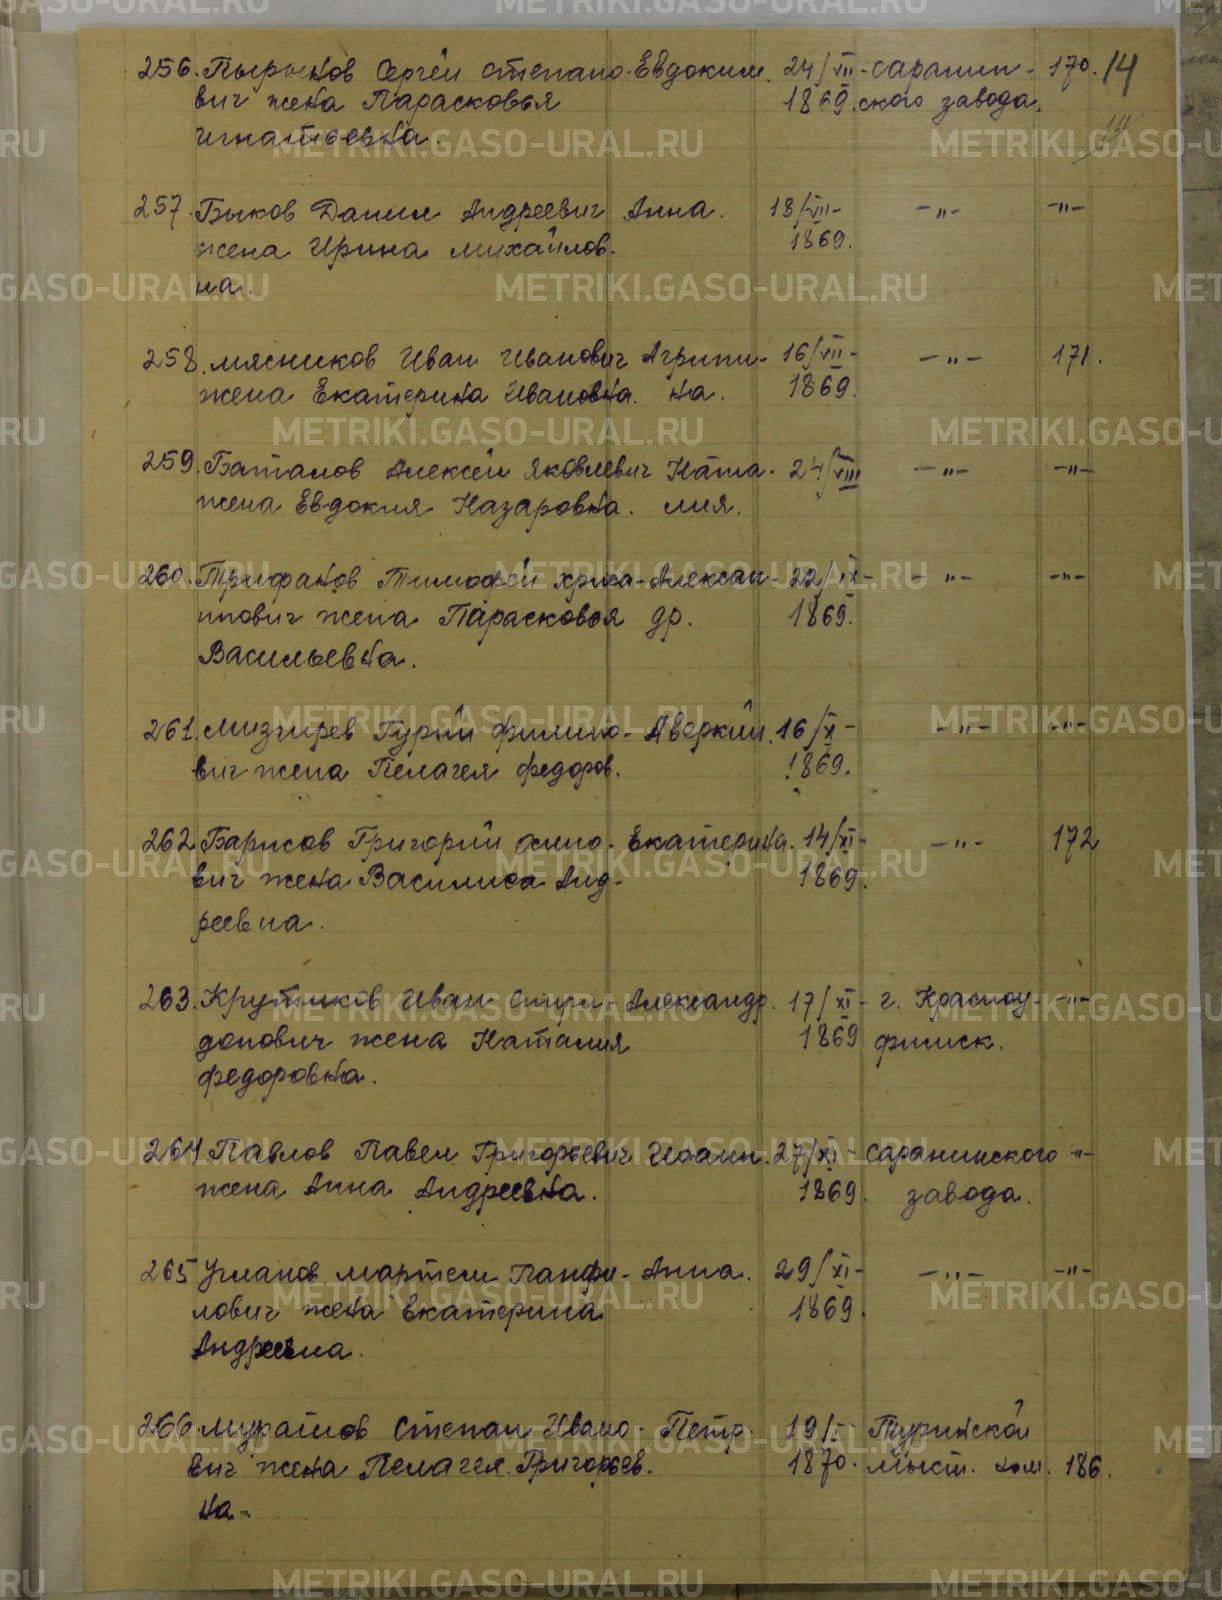 256. Пырьков Сергей Степано- Евдоким. 24/VII- Саранин- 170. 14
вич жена Парасковья 1869. ского завода.
Игнатьевна.
257. Быков Данил Андреевич Анна. 18/VII- -"- -"-
жена Ирина Михайлов- 1869.
на.
258. Мясников Иван Иванович Агрипи- 16/VII- -"- 171.
жена Екатерина Ивановна. на. 1869.
259. Баталов Алексей Яковлевич Ната- 24/VIII -"- -"-
жена Евдокия Назаровна. лия.
260. Трифанов Тимофей Хриса- Алексан- 22/IX- -"- -"-
нпович жена Парасковья др. 1869.
Васильевна.
261. Мизгирев Гурий Филипо- Аверкий. 16/X- -"- -"-
вич жена Пелагея Федоров. 1869.
262. Барисов Григорий Осипо- Екатерина. 14/XI- -"- 172
вич жена Василиса Анд- 1869.
реевна.
263. Крутиков Иван Спири- Александр. 17/XI- г. Красноу- -"-
донович жена Наталия 1869 фимск.
Федоровна.
264 Павлов Павел Григорьевич Иоанн. 27/XI- Саранинского -"-
жена Анна Андреевна. 1869. завода.
265 Угланов Мартем Панфи- Анна. 29/XI- -"- -"-
лович жена Екатерина 1869.
Андреевна.
266. Муратов Степан Ивано- Петр. 19/I- Туринской
вич жена Пелагея Григорьев. 1870. мыст. 186.
на-
METRIKI.GASO-URAL.RU